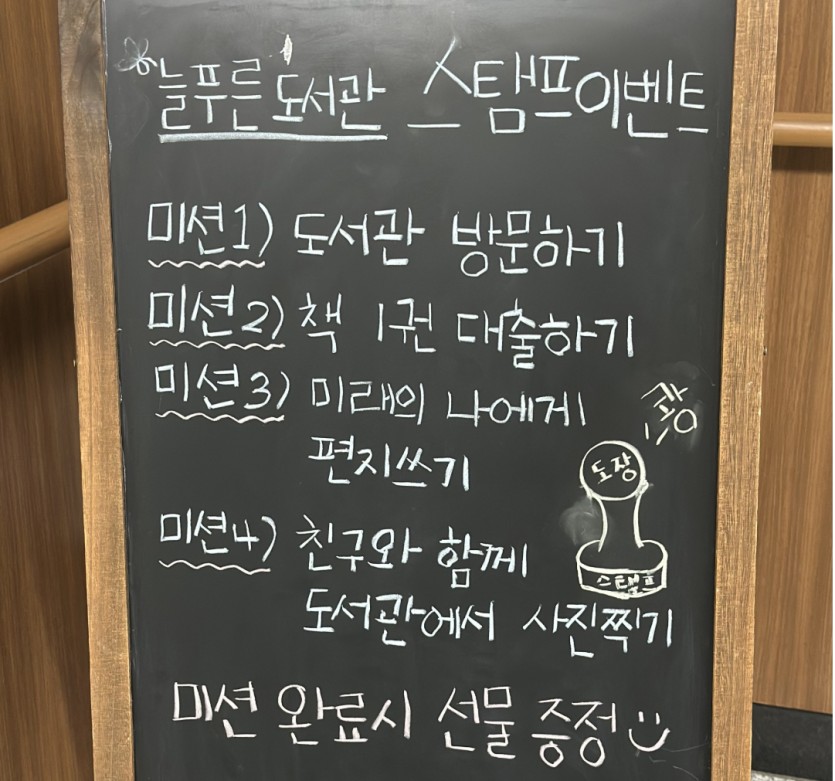 늘푸른 도서관 스탬프이벤트
미션1) 도서관 방문하기
미션2) 책 1권 대출하기
미션3) 미래의 나에게
편지쓰기
쾅
도장
스탬프
미션4) 친구와 함께
도서관에서 사진찍기
미션 완료시 선물 증정